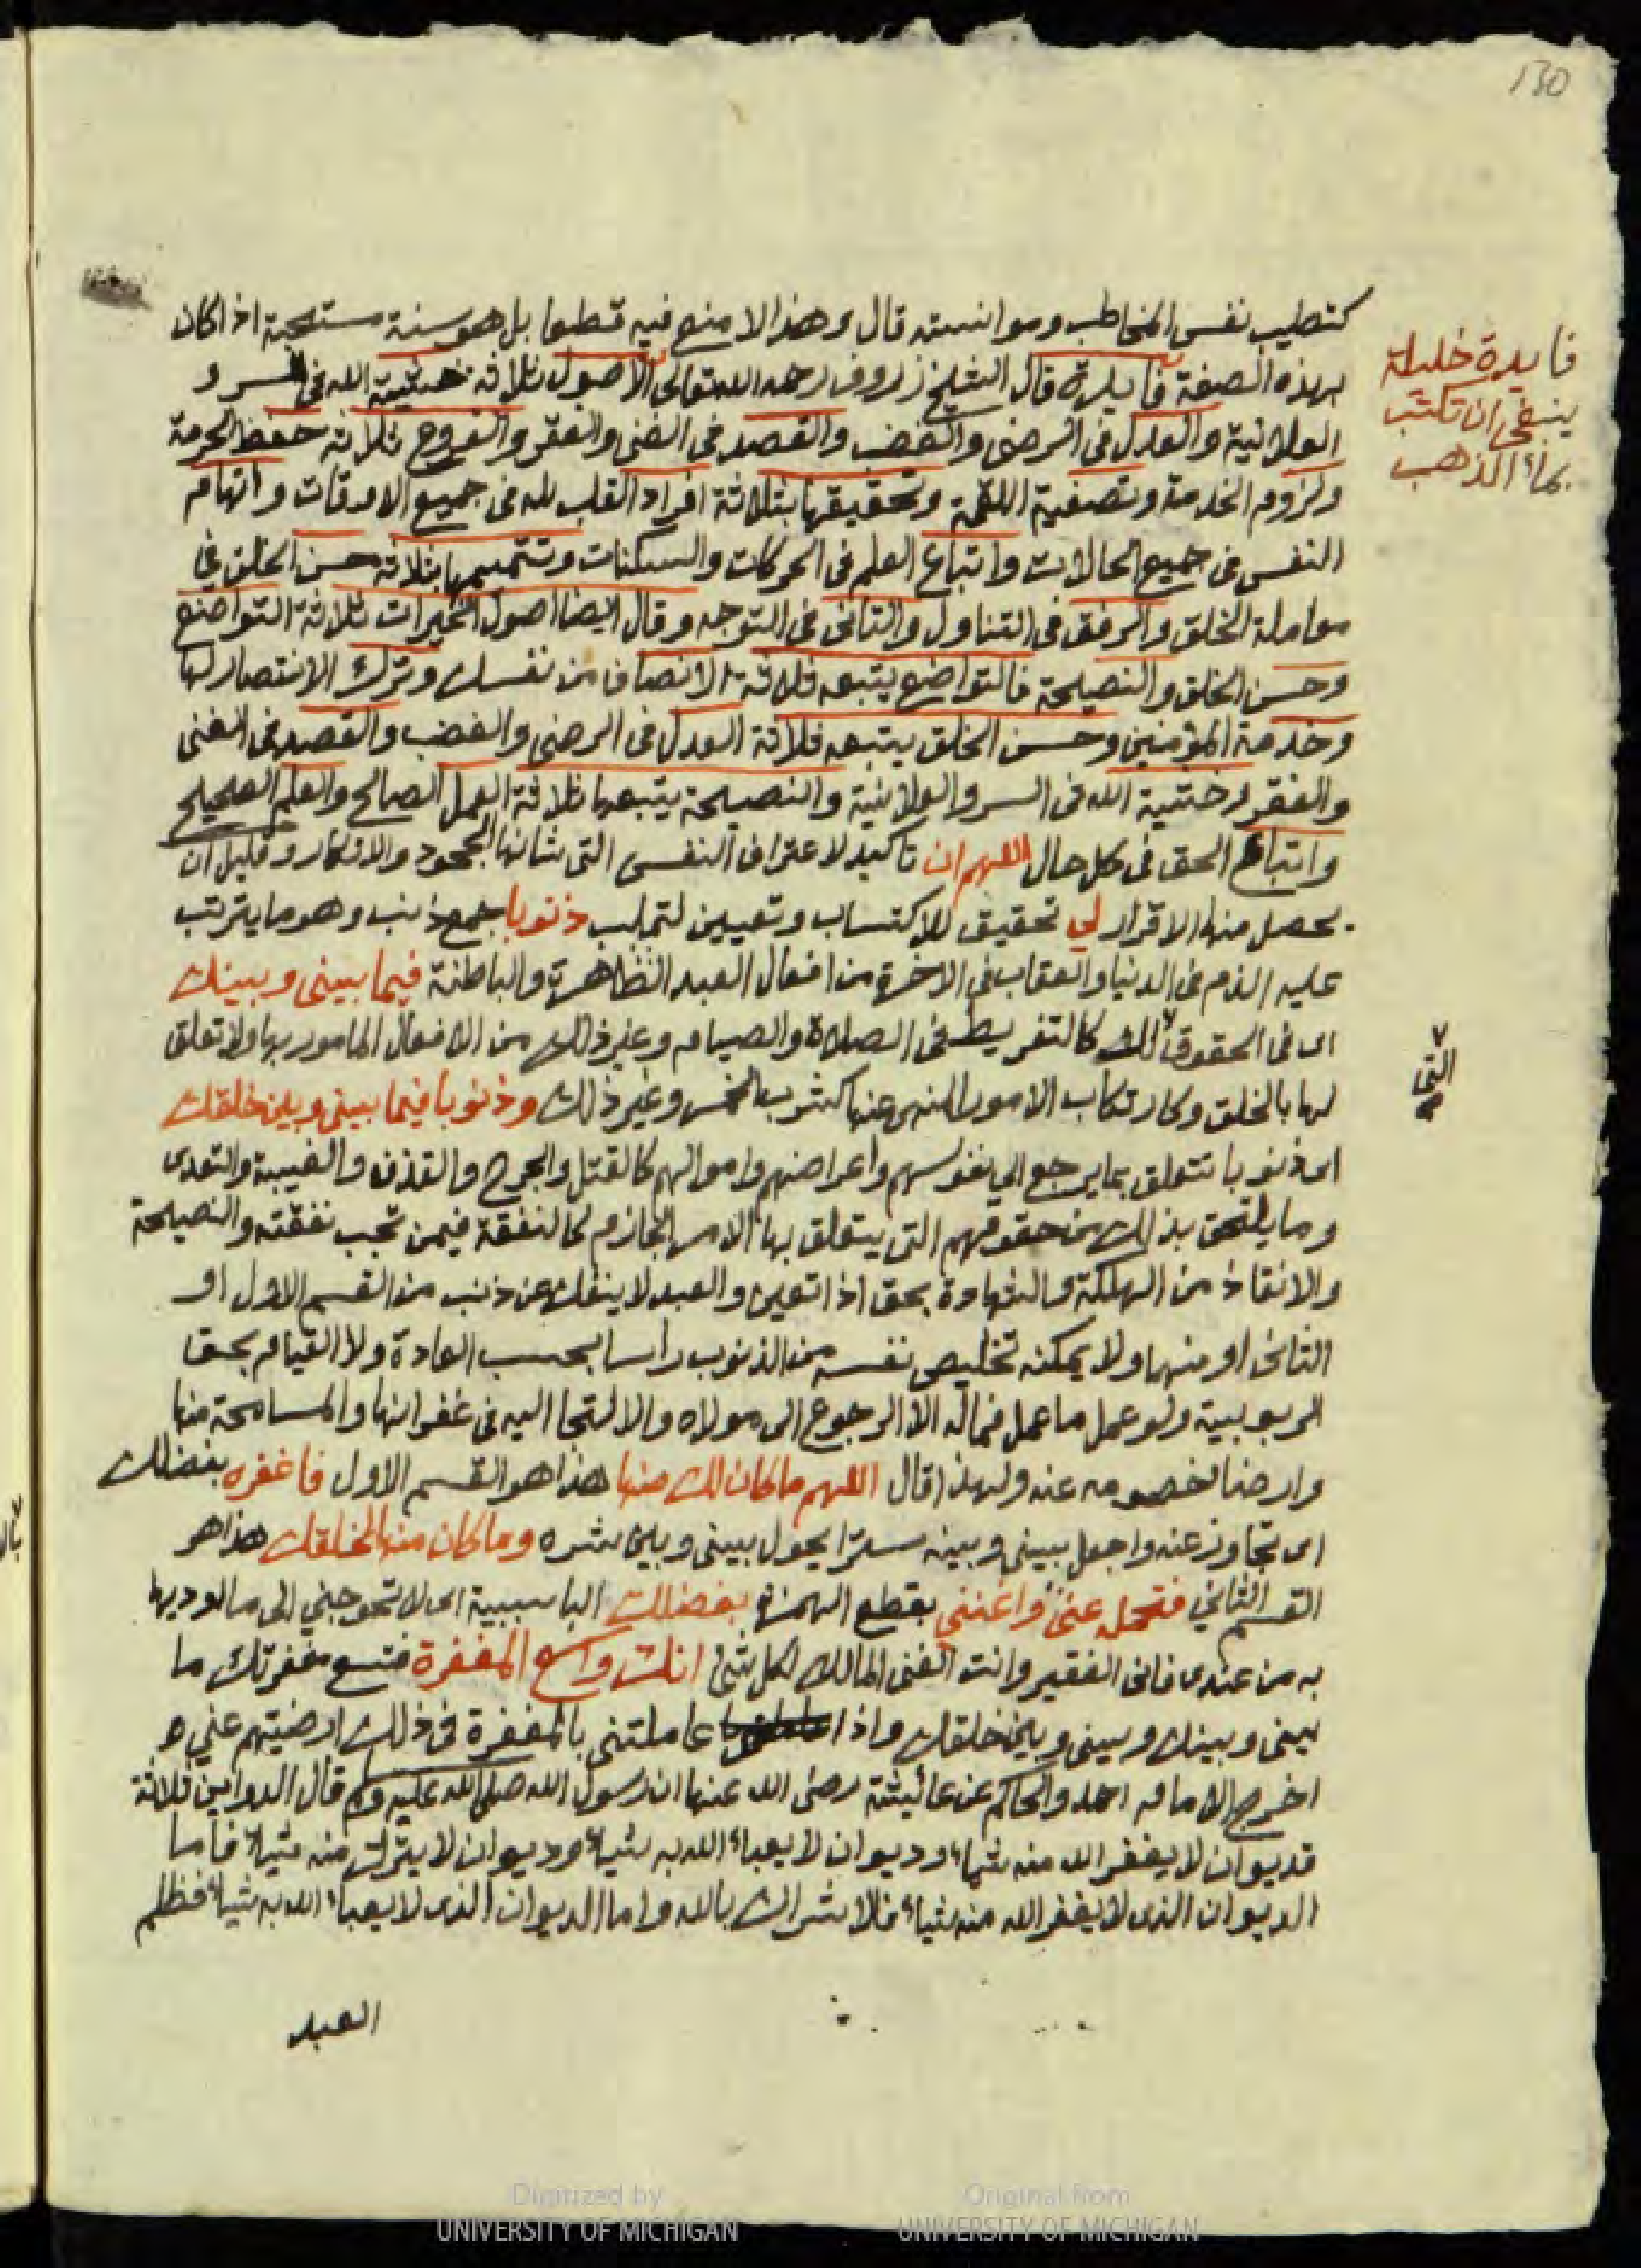 130
كتطيب نفس المخاطب وموانسته قال وهذا لا منع فيه قطعا بل هو سنة مستحبة اذا كان
بهذه الصفة فايدة قال الشيخ زروق رحمه الله تعالى الاصول ثلاثة خشية الله في السر و
العلانية والعدل في الرضى والغضب والقصد في الغنى والفقر والفروع ثلاثة حفظ الحرمة
ولزوم الخدمة وتصفية اللقمة وتحقيقها بثلاثة افراد القلب لله في جميع الاوقات واتهام
النفس في جميع الحالات واتباع العلم في الحركات والسكنات وتتميمها بثلاثة حسن الخلق في
معاملة الخلق والرفق في التناول والتانى في التوجه وقال ايضا اصول الخيرات ثلاثة التواضع
وحسن الخلق والنصيحة فالتواضع يتبعه ثلاثة الانصاف من نفسك وترك الانتصار لها
وخدمة المؤمنين وحسن الخلق يتبعه ثلاثة العدل في الرضى والغضب والقصد في الغنى
والفقر وخشية الله في السر والعلانية والنصيحة يتبعها ثلاثة العمل الصالح والعلم الصحيح
واتباع الحق في كل حال اللهم ان تاكيد لاعتراف النفس التى شانها الجحود والانكار وقليل ان
يحصل منها الاقرار لي تحقيق للاكتساب وتعيين لتملب ذنوبا جمع ذنب وهو ما يترتب
عليه الذم في الدنيا والعقاب في الاخرة من افعال العبد الظاهرة والباطنة فيما بينى وبينك
اى في الحقوق لك كالتفريط في الصلاة والصيام وغير ذلك من الافعال المامور بها ولا تعلق
لها بالخلق وكارتكاب الامور المنهى عنها كشرب الخمر وغير ذلك وذنوبا فيما بينى وبين خلقك
اى ذنوبا تتعلق بما يرجع الى نفوسهم واعراضهم واموالهم كالقتل والجرح والقذف والغيبة والتعدى
وما يلتحق بذلك من حقوقهم التى يتعلق بها الامر الجازم كالنفقة فيمن تجب نفقته والنصيحة
والانقاذ من الهلكة والشهادة بحق اذا تعين والعبد لا ينفك عن ذنب من القسم الاول او
الثانى او منهما ولا يمكنه تخليص نفسه من الذنوب راسا بحسب العادة ولا القيام بحق
الربوبية ولو عمل ما عمل فماله الا الرجوع الى مولاه والالتجا اليه في غفرانها والمسامحة منها
وارضا خصومه عنه ولهذا قال اللهم ما كان لك منها هذا هو القسم الاول فاغفره بفضلك
اى تجاوز عنه واجعل بينى وبينه سترا يحول بينى وبين شره وما كان منها لخلقك هذا هو
القسم الثاني فتحمله عنى واغننى بقطع الهمزة بفضلك البا سببية اى لا تحوجني الى ما اوديها
به من عندى فانى الفقير وانت الغنى المالك لكل شئ انك واسع المغفرة فتسع مغفرتك ما
بينى وبينك وبينى وبين خلقك واذا عاملتنى بالمغفرة في ذلك ارضيتهم عني و
اخرج الامام احمد والحاكم عن عائيشة رضى الله عنها ان رسول الله صلى الله عليه وسلم قال الدواين ثلاثة
فديوان لا يغفر الله منه شيأ وديوان لا يعبأ الله به شيأ وديوان لا يترك منه شيأ فاما
الديوان الذى لا يغفر الله منه شيأ فالاشراك بالله واما الديوان الذى لا يعبأ الله به شيأ فظلم
العبد
فايدة جليلة
ينبغى ان تكتب
بماء الذهب
التى
Digitized by
UNIVERSITY OF MICHIGAN
Original from
UNIVERSITY OF MICHIGAN